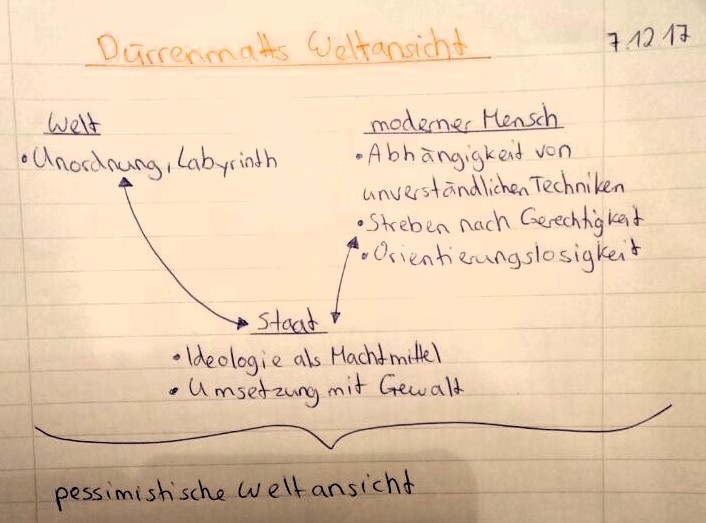 Dürrenmatts Weltansicht
7.12.17
Welt
• Unordnung, Labyrinth
moderner Mensch
• Abhängigkeit von
unverständlichen Techniken
• Streben nach Gerechtigkeit
• Orientierungslosigkeit
Staat
• Ideologie als Machtmittel
• Umsetzung mit Gewalt
pessimistische Weltansicht